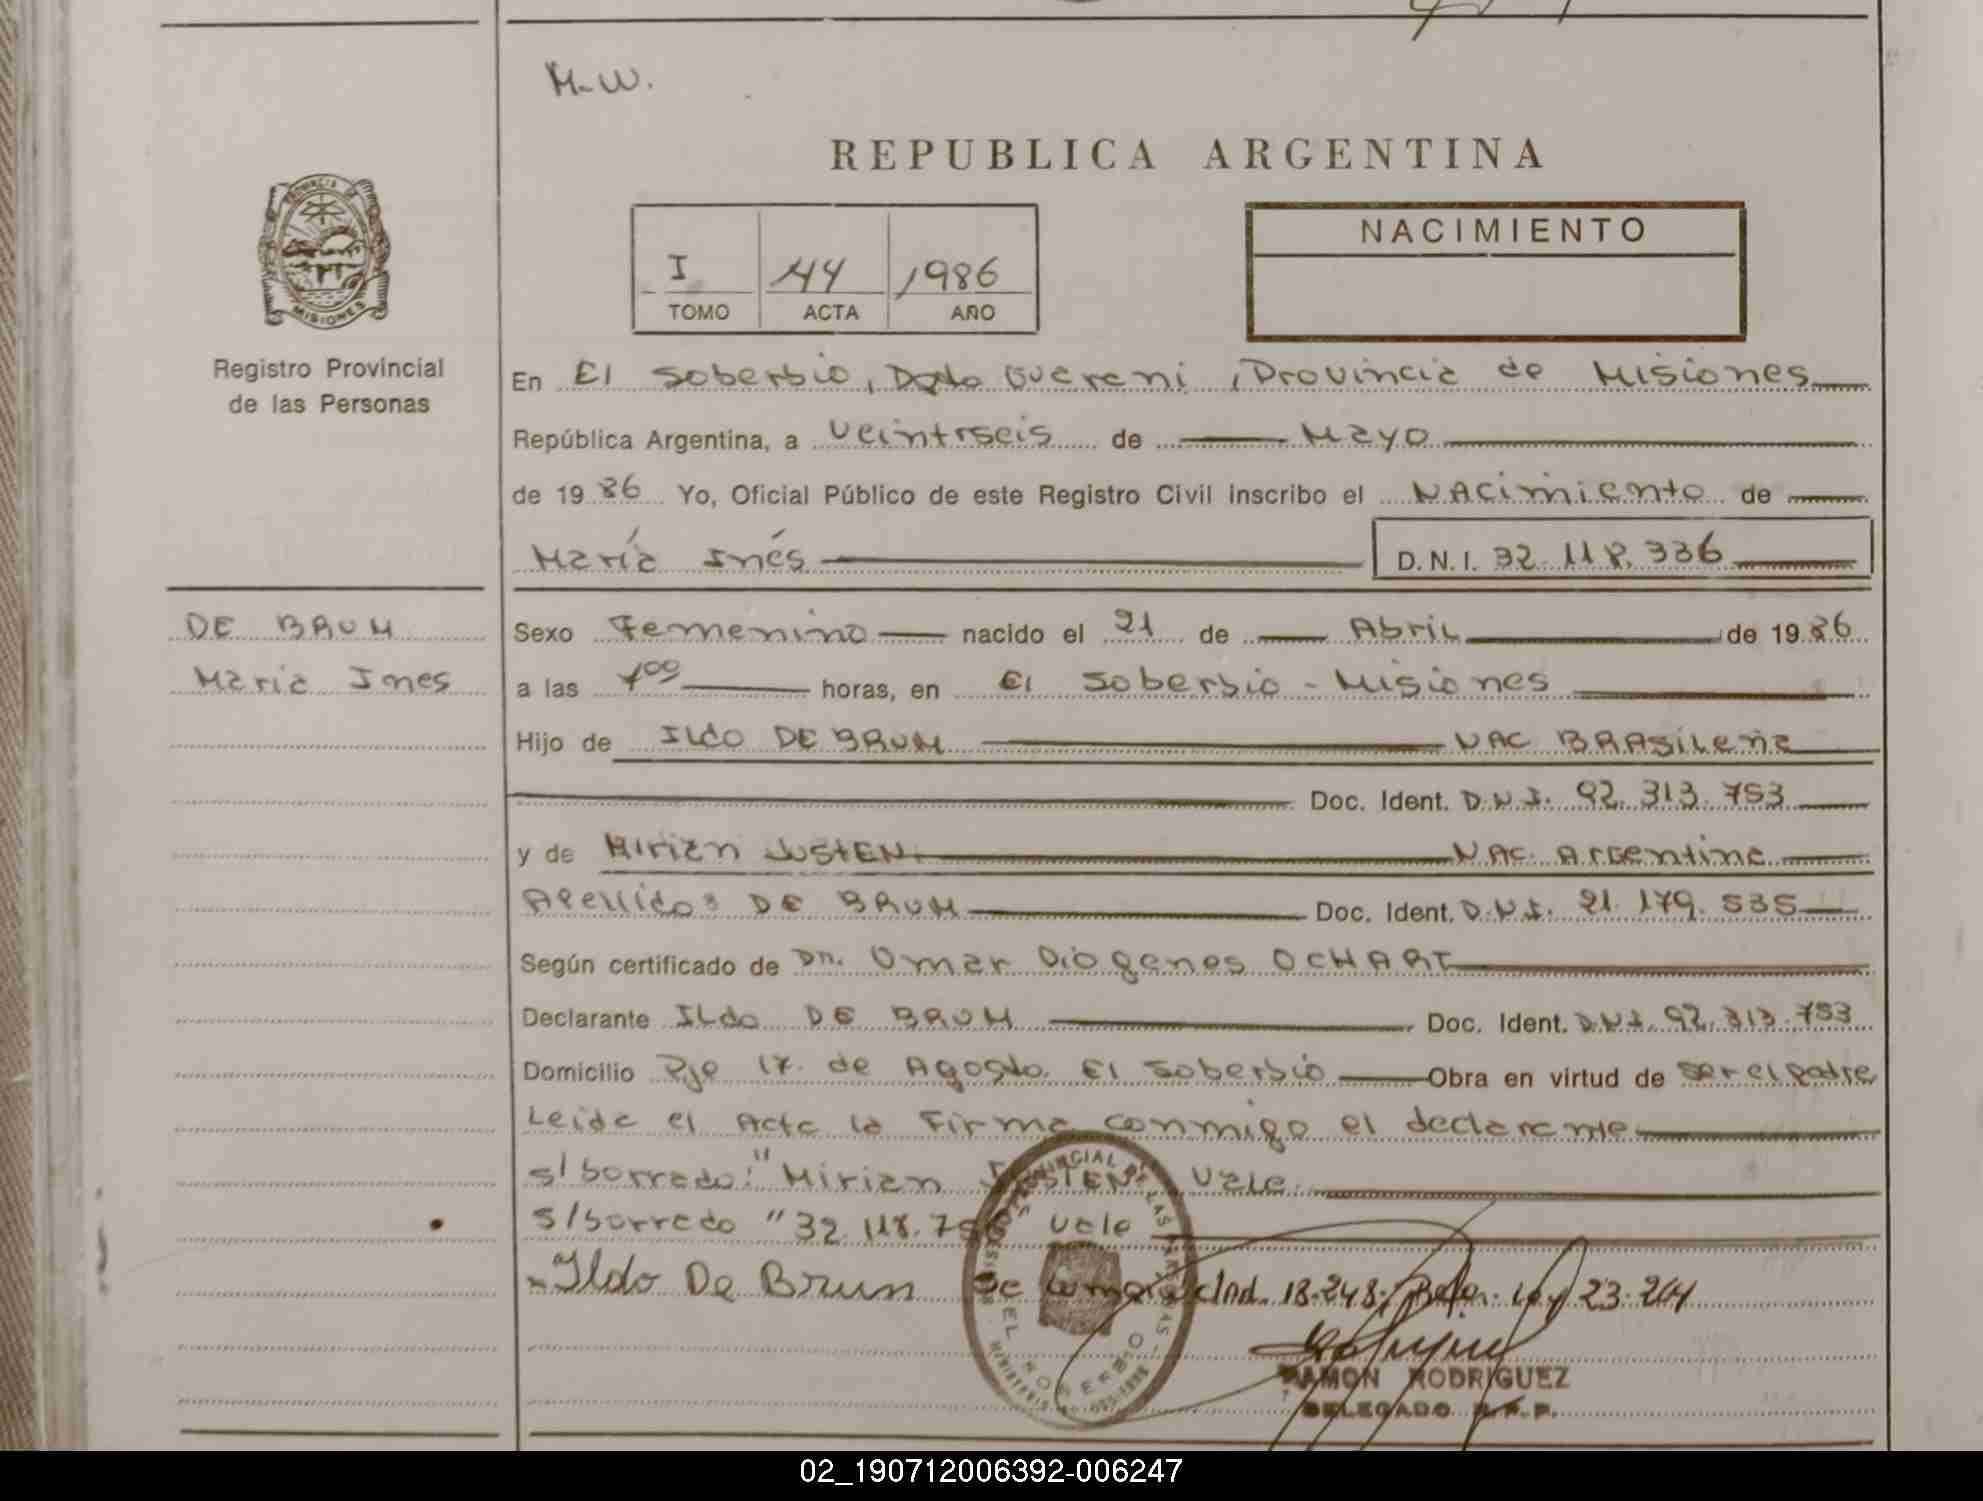 M-W.
REPUBLICA ARGENTINA
PROVINCIA DE
MISIONES
I 144 1986
TOMO ACTA AÑO
NACIMIENTO
Registro Provincial
de las Personas
En El Soberbio, Dpto Guarani, Provincia de Misiones
República Argentina, a Veintiseis de Mayo
de 1986 Yo, Oficial Público de este Registro Civil inscribo el NAcimiento de
María Inés D.N.I. 32.118.336
DE BRUM
Maria Ines
Sexo Femenino nacido el 21 de Abril de 1986
a las 7⁰⁰ horas, en El Soberbio - Misiones
Hijo de ILdo DE BRUM NAC BRAsiLeña
Doc. Ident. D.N.I. 92.313.753
y de Mirian JUstEN. NAC. Argentina
Apellidos DE BRUM Doc. Ident. D.N.I. 21.179.535
Según certificado de Dn. Omar Diogenes OCHART
Declarante ILdo DE BRUM Doc. Ident. D.N.I. 92.313.753
Domicilio Pje 17. de Agosto. El Soberbio Obra en virtud de ser el padre
Leida el Acta la Firma conmigo el declarante
s/borrado: "Mirian JUSTEN" Vale.
s/borrado "32.118.736 Vale
Ildo De Brun Ind. 18.248. Ley 23.264
RAMON RODRIGUEZ
DELEGADO R.P.P.
EL SOBERBIO
02_190712006392-006247